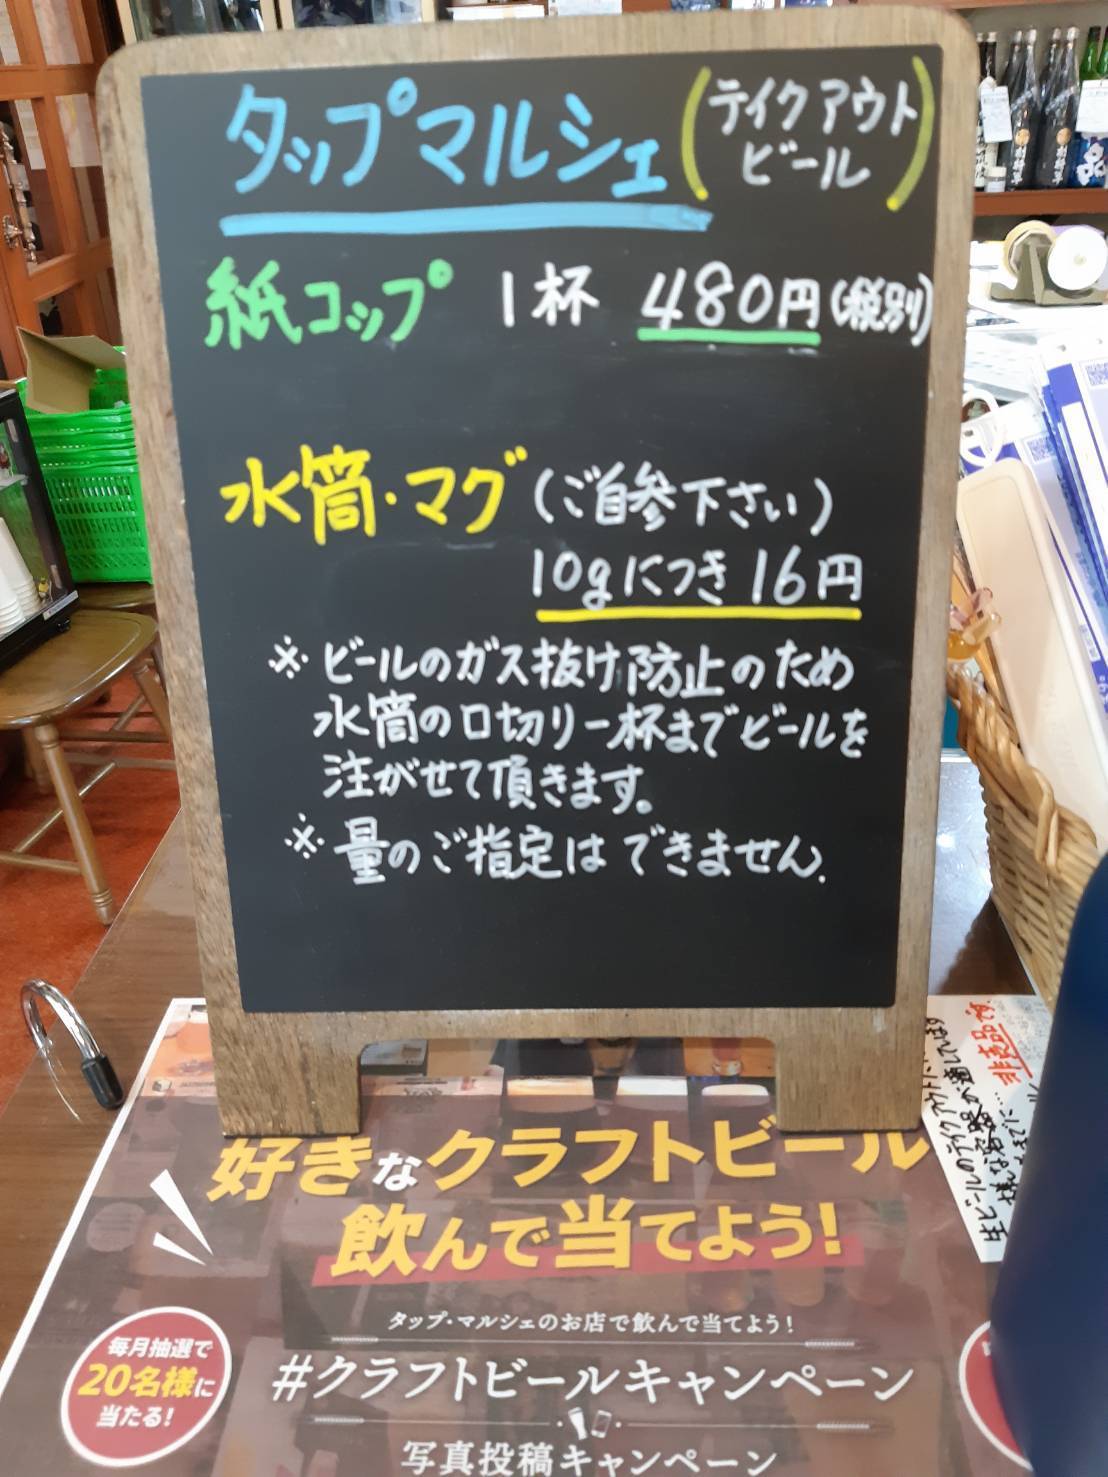 タップマルシェ(テイクアウトビール)
紙コップ 1杯 480円(税別)
水筒・マグ(ご自参下さい)
10gにつき16円
※ビールのガス抜け防止のため
水筒の口切り一杯までビールを
注がせて頂きます。
※量のご指定はできません.
好きなクラフトビール
飲んで当てよう!
タップ・マルシェのお店で飲んで当てよう!
#クラフトビールキャンペーン
写真投稿キャンペーン
毎月抽選で
20名様に
当たる!
非売品です